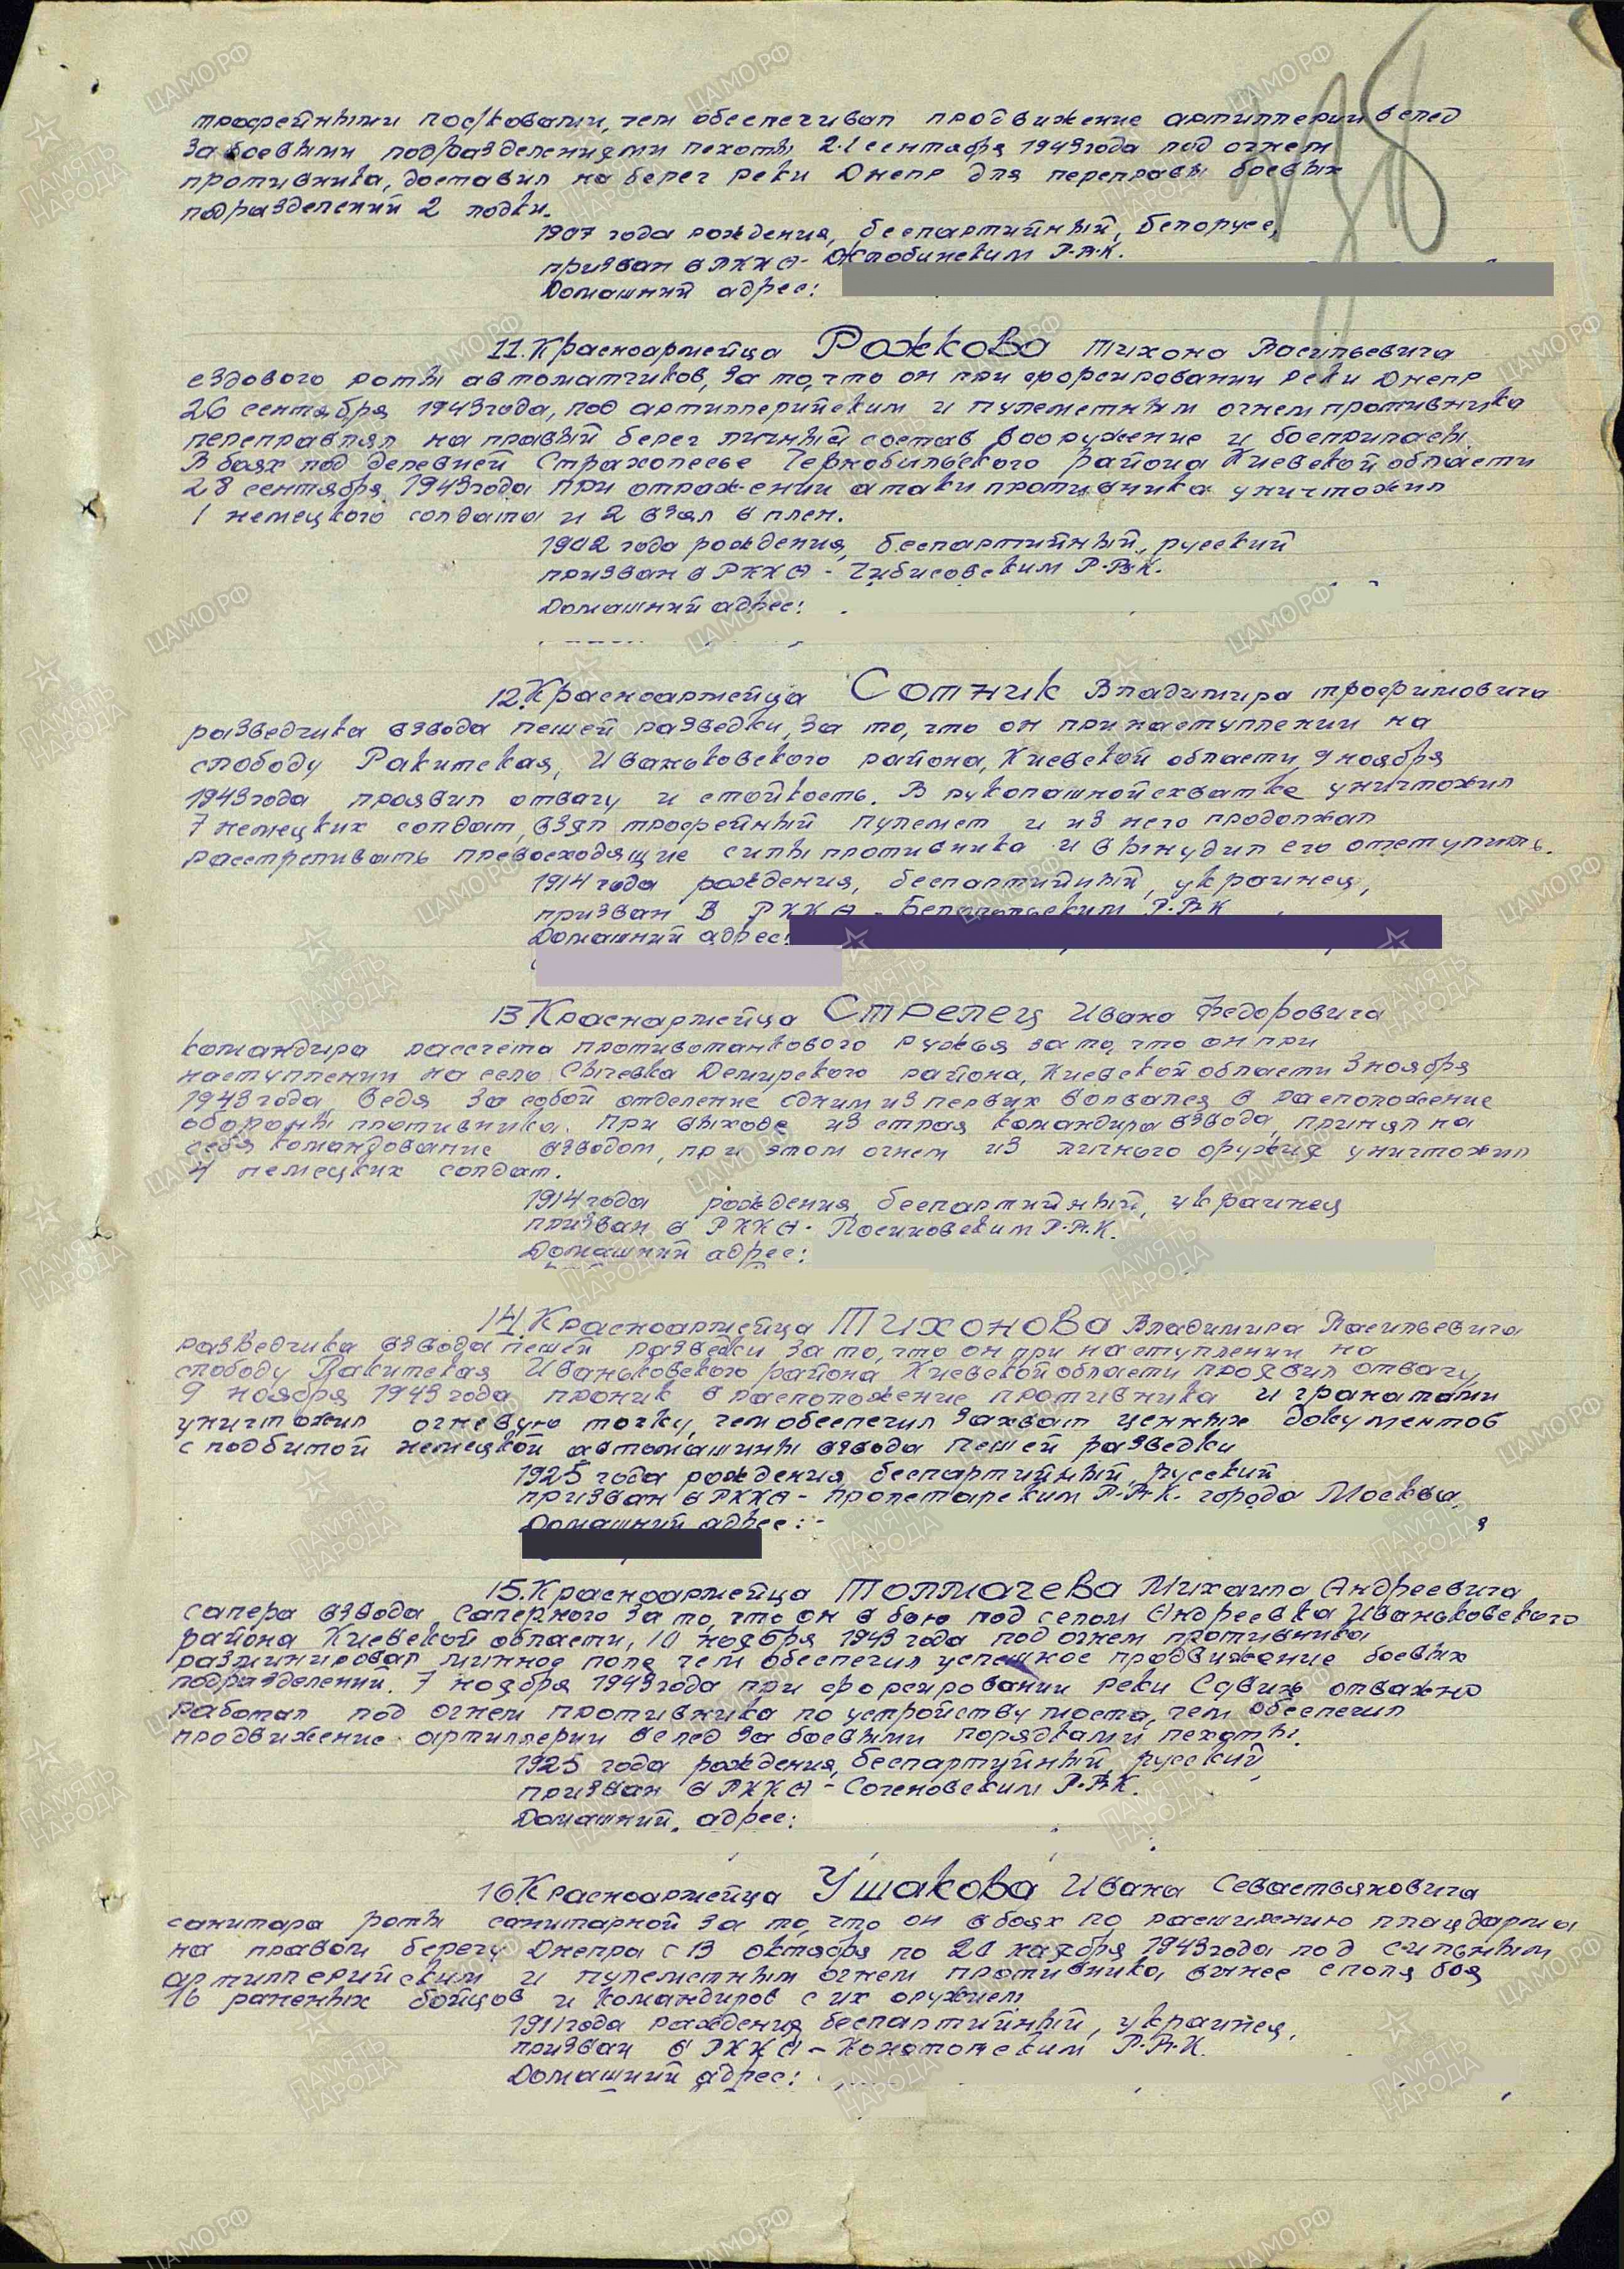 трофейными повозками, чем обеспечивал продвижение артиллерии вслед
за боевыми подразделениями пехоты 21 сентября 1943 года под огнем
противника, доставил на берег реки Днепр для переправы боевых
подразделений 2 лодки.
1907 года рождения, беспартийный, белорусс,
призван в РККА - Жлобинским Р.В.К.
Домашний адрес:
11. Красноармейца Рожкова Тихона Васильевича
ездового роты автоматчиков, за то, что он при форсировании реки Днепр
26 сентября 1943 года, под артиллерийским и пулеметным огнем противника
переправлял на правый берег личный состав вооружение и боеприпасы.
В боях под деревней Страхолесье Чернобыльского района Киевской области
28 сентября 1943 года при отражении атаки противника уничтожил
1 немецкого солдата и 2 взял в плен.
1902 года рождения, беспартийный, русский
призван в РККА - Чибисовским Р.В.К.
Домашний адрес:
12. Красноармейца Сотник Владимира Трофимовича
разведчика взвода пешей разведки, за то, что он при наступлении на
слободу Ракитская, Иваньковского района, Киевской области 9 ноября
1943 года проявил отвагу и стойкость. В рукопашной схватке уничтожил
7 немецких солдат, взял трофейный пулемет и из него продолжал
расстреливать превосходящие силы противника и вынудил его отступить.
1914 года рождения, беспартийный, украинец,
призван в РККА - Белопольским Р.В.К
Домашний адрес:
13. Краснармейца Стрелец Ивана Федоровича
командира рассчета противотанкового ружья за то, что он при
наступлении на село Сычевка Демирского района, Киевской области 3 ноября
1943 года ведя за собой отделение одним из первых ворвался в расположение
обороны противника. При выходе из строя командира взвода, принял на
себя командование взводом, при этом огнем из личного оружия уничтожил
4 немецких солдат.
1914 года рождения беспартийный, украинец
призван в РККА - Лосиновским Р.В.К.
Домашний адрес:
14. Красноармейца Тихонова Владимира Васильевича
разведчика взвода пешей разведки за то, что он при наступлении на
слободу Ракитская Иваньковского района Киевской области проявил отвагу,
9 ноября 1943 года проник в расположение противника и гранатами
уничтожил огневую точку, чем обеспечил захват ценных документов
с подбитой немецкой автомашины взвода пешей разведки
1925 года рождения, беспартийный, русский
призван в РККА - Пролетарским Р.В.К. города Москва,
Домашний адрес:
15. Красноармейца Толмачева Михаила Андреевича
сапера взвода саперного за то, что он в бою под селом Андреевка Иваньковского
района Киевской области, 10 ноября 1943 года под огнем противника
разминировал минное поле чем обеспечил успешное продвижение боевых
подразделений. 7 ноября 1943 года при форсировании реки Сдвиж отважно
работал под огнем противника по устройству моста, чем обеспечил
продвижение артиллерии вслед за боевыми порядками пехоты.
1925 года рождения, беспартийный русский,
призван в РККА - Соченовским Р.В.К.
Домашний адрес:
16. Красноармейца Ушакова Ивана Севастьяновича
санитара роты санитарной за то, что он в боях по расширению плацдарма
на правом берегу Днепра с 13 октября по 20 ноября 1943 года под сильным
артиллерийским и пулеметным огнем противника вынес с поля боя
16 раненых бойцов и командиров с их оружием
1911 года рождения беспартийный, украинец,
призван в РККА - Конотопским Р.В.К.
Домашний адрес: